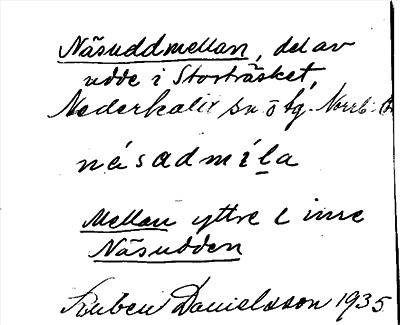 Näsuddmellan, del av
udde i Storträsket,
Nederkalix sn o tg. Norrb.
násadmíla
Mellan yttre l inre
Näsudden
Ruben Danielsson 1935